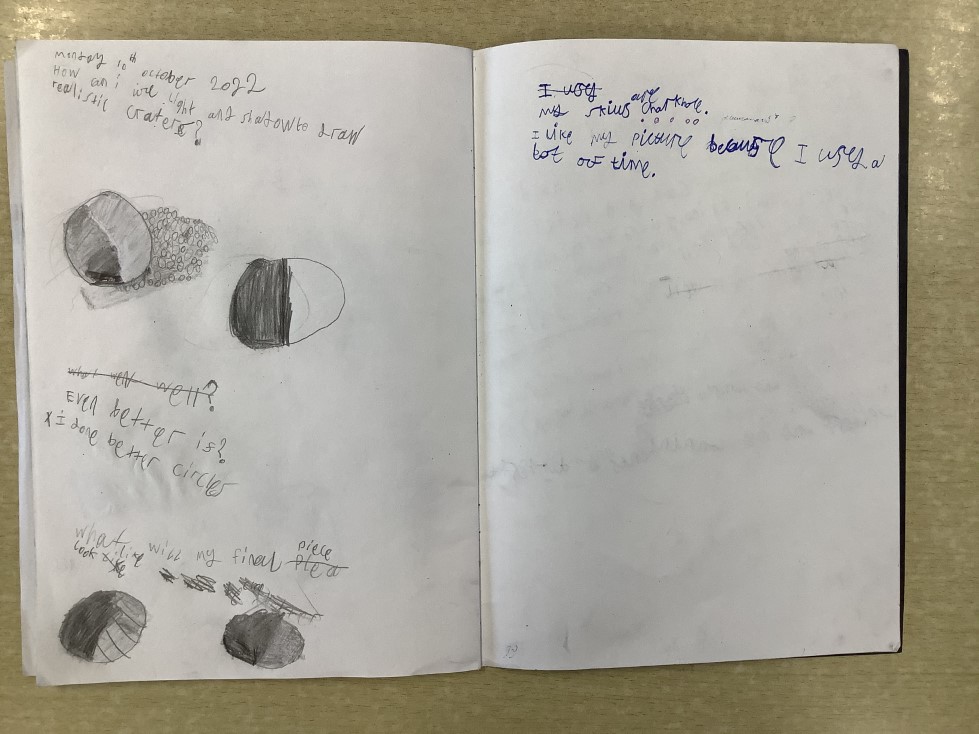 Monday 10th october 2022
How can i use light and shadow to draw
realistic craters?
what went well?
Even better is?
x I done better circles
what will my final piece
look like
I used
my skills are
I like my picture because I used a
lot off time.